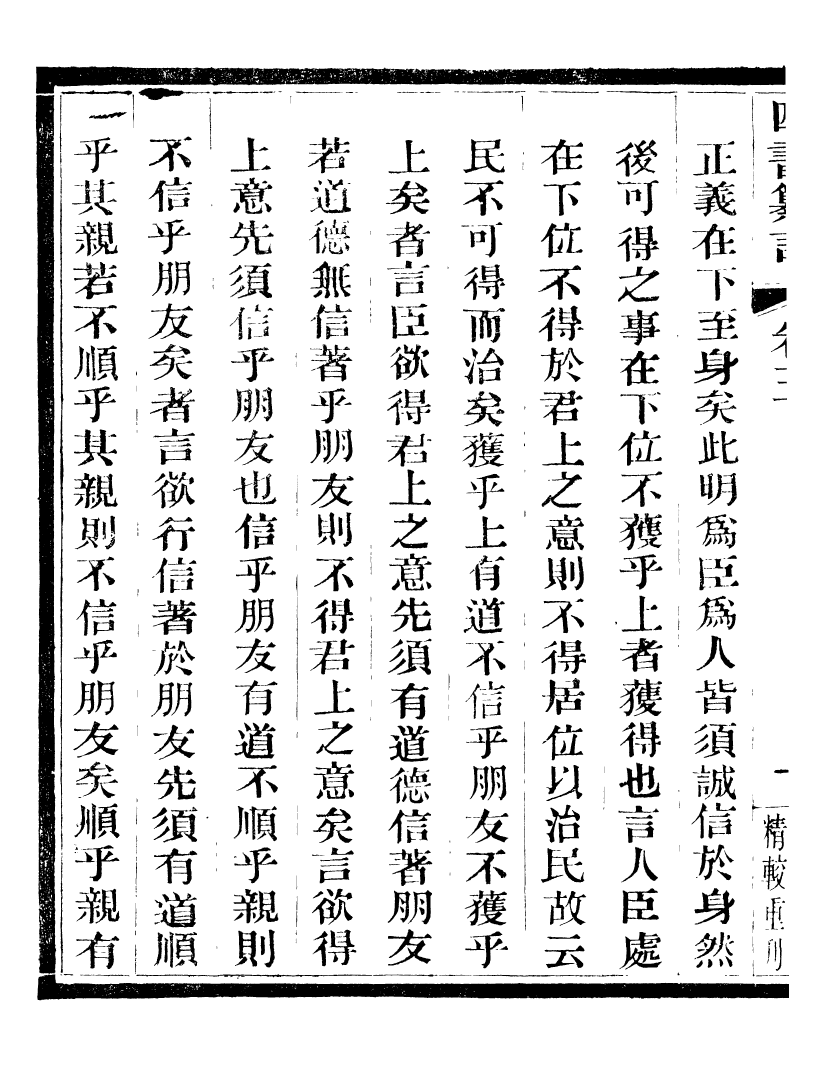 四書纂言 卷三 一 精較重刋
正義在下至身矣此明爲臣爲人皆須誠信於身然
後可得之事在下位不獲乎上者獲得也言人臣處
在下位不得於君上之意則不得居位以治民故云
民不可得而治矣獲乎上有道不信乎朋友不獲乎
上矣者言臣欲得君上之意先須有道德信著朋友
若道德無信著乎朋友則不得君上之意矣言欲得
上意先須信乎朋友也信乎朋友有道不順乎親則
不信乎朋友矣者言欲行信著於朋友先須有道順
乎其親若不順乎其親則不信乎朋友矣順乎親有